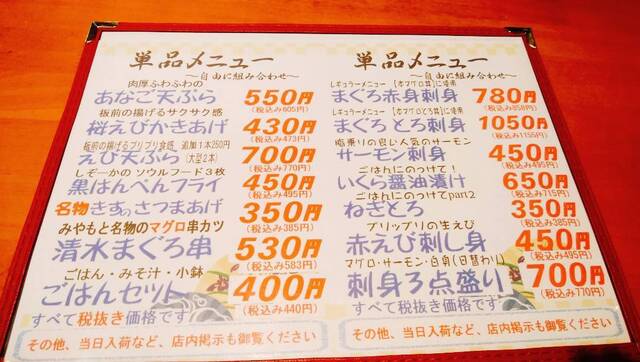 単品メニュー
〜自由に組み合わせ〜
肉厚ふわふわの
あなご天ぷら 550円
(税込み605円)
板前の揚げるサクサク感
桜えびかきあげ 430円
(税込み473円)
板前の揚げるプリプリ食感 追加1本250円
えび天ぷら(大型2本) 700円
(税込み770円)
しぞーかの ソウルフード3枚
黒はんぺんフライ 450円
(税込み495円)
名物きすのさつまあげ 350円
(税込み385円)
みやもと名物のマグロ串カツ
清水まぐろ串 530円
(税込み583円)
ごはん・みそ汁・小鉢
ごはんセット 400円
(税込み440円)
すべて税抜き価格です
その他、当日入荷など、店内掲示も御覧ください
単品メニュー
〜自由に組み合わせ〜
レギュラーメニュー 【本マグロ丼】に使用
まぐろ赤身刺身 780円
(税込み858円)
レギュラーメニュー 【本マグロとろ丼】に使用
まぐろとろ刺身 1050円
(税込み1155円)
脂乗りの良い人気のサーモン
サーモン刺身 450円
(税込み495円)
ごはんにのっけて!
いくら醤油漬け 650円
(税込み715円)
ごはんにのっけてpart2
ねぎとろ 350円
(税込み385円)
プリップリの生えび
赤えび刺し身 450円
(税込み495円)
マグロ・サーモン・白身(日替わり)
刺身3点盛り 700円
(税込み770円)
すべて税抜き価格です
その他、当日入荷など、店内掲示も御覧ください